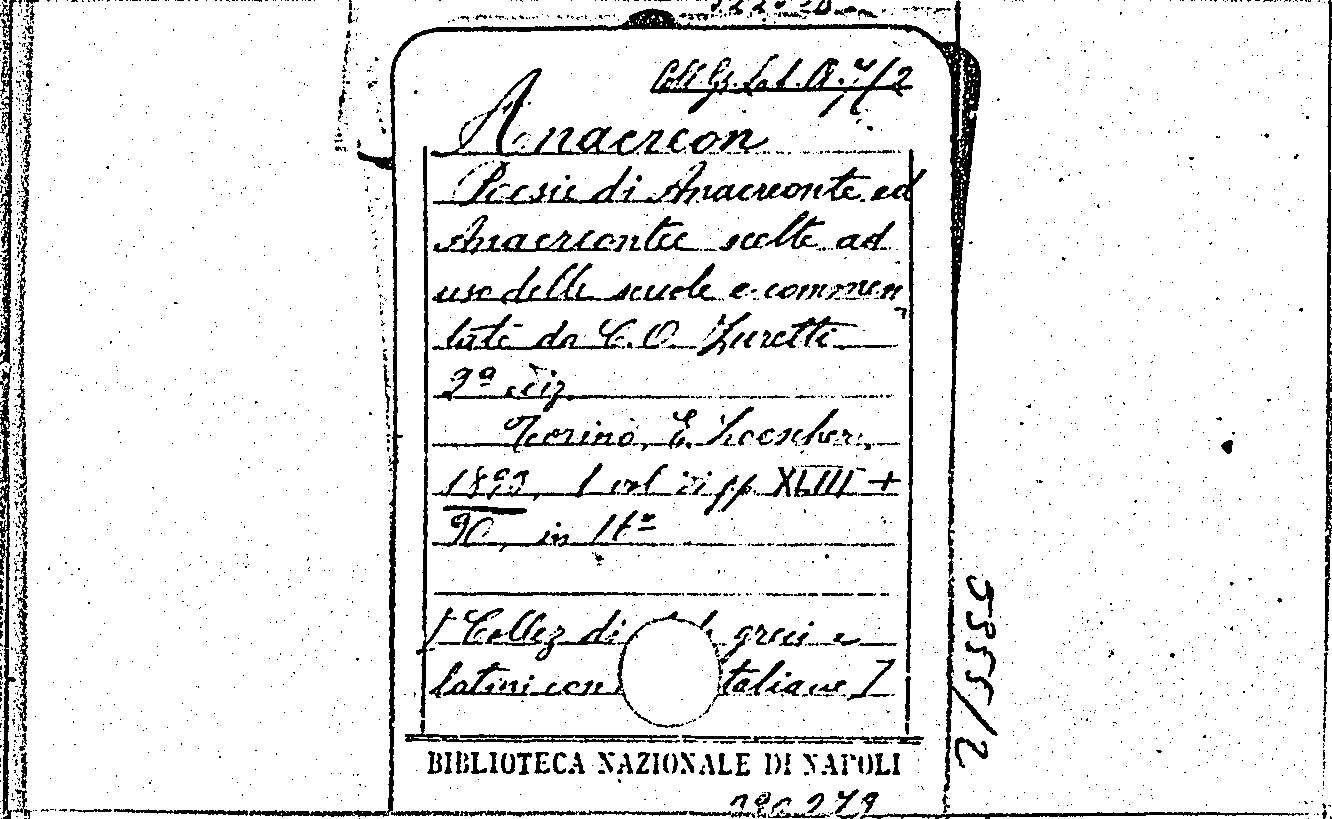 Coll. Gr. Lat. A. 7/2
Anacreon
Poesie di Anacreonte ed
Anacreontee scelte ad
uso delle scuole e commen
tate da C. O. Zuretti
2ª ediz.
Torino, E. Loescher,
1893, 1 vol di pp XLIII +
90, in 16º
[Collez di greci e
latini con italiane]
BIBLIOTECA NAZIONALE DI NAPOLI
5955/2